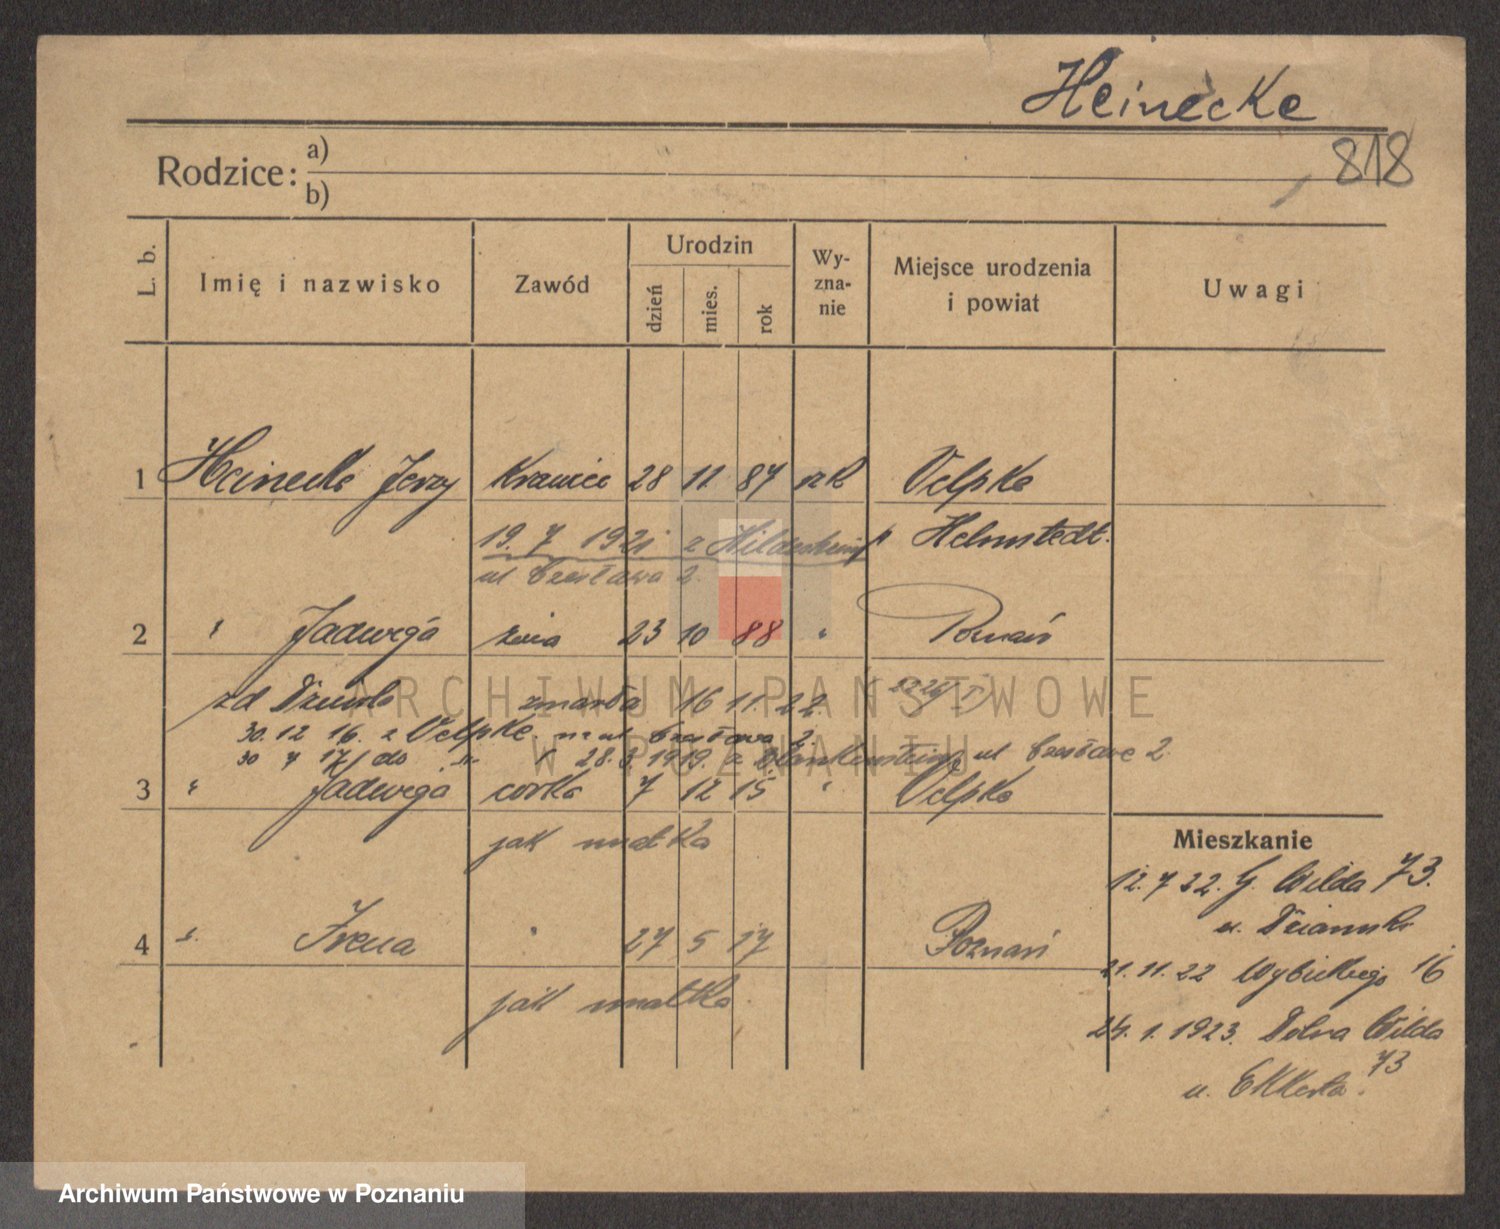 Heinecke
818
Rodzice: a)
b)
L. b. Imię i nazwisko Zawód Urodzin dzień mies. rok Wy-zna-nie Miejsce urodzenia i powiat Uwagi
1 Heinecke Jerzy Krawiec 28 11 87 rzk Velpke
19. 7 1921 z Hildesheim Helmstedt.
ul Czesława 2.
2 " Jadwiga żona 23 10 88 " Poznań
zd zmarła 16 11. 22.
30. 12 16. z Velpke. ul. Czesława 2.
30 7 17 do 28. 3. 1919. z Blankenstein ul Czesława 2.
3 " Jadwiga córka 7 12 15 " Velpke
jak matka
Mieszkanie
12. 7 22. G. Wilda 73.
u.
4 " Irena " 27 5 17 Poznań
21. 11. 22 Wybickiego 16
jak matka.
24. 1. 1923. Dolna Wilda 73
u. Ekkerta.
ARCHIWUM PAŃSTWOWE
W POZNANIU
Archiwum Państwowe w Poznaniu